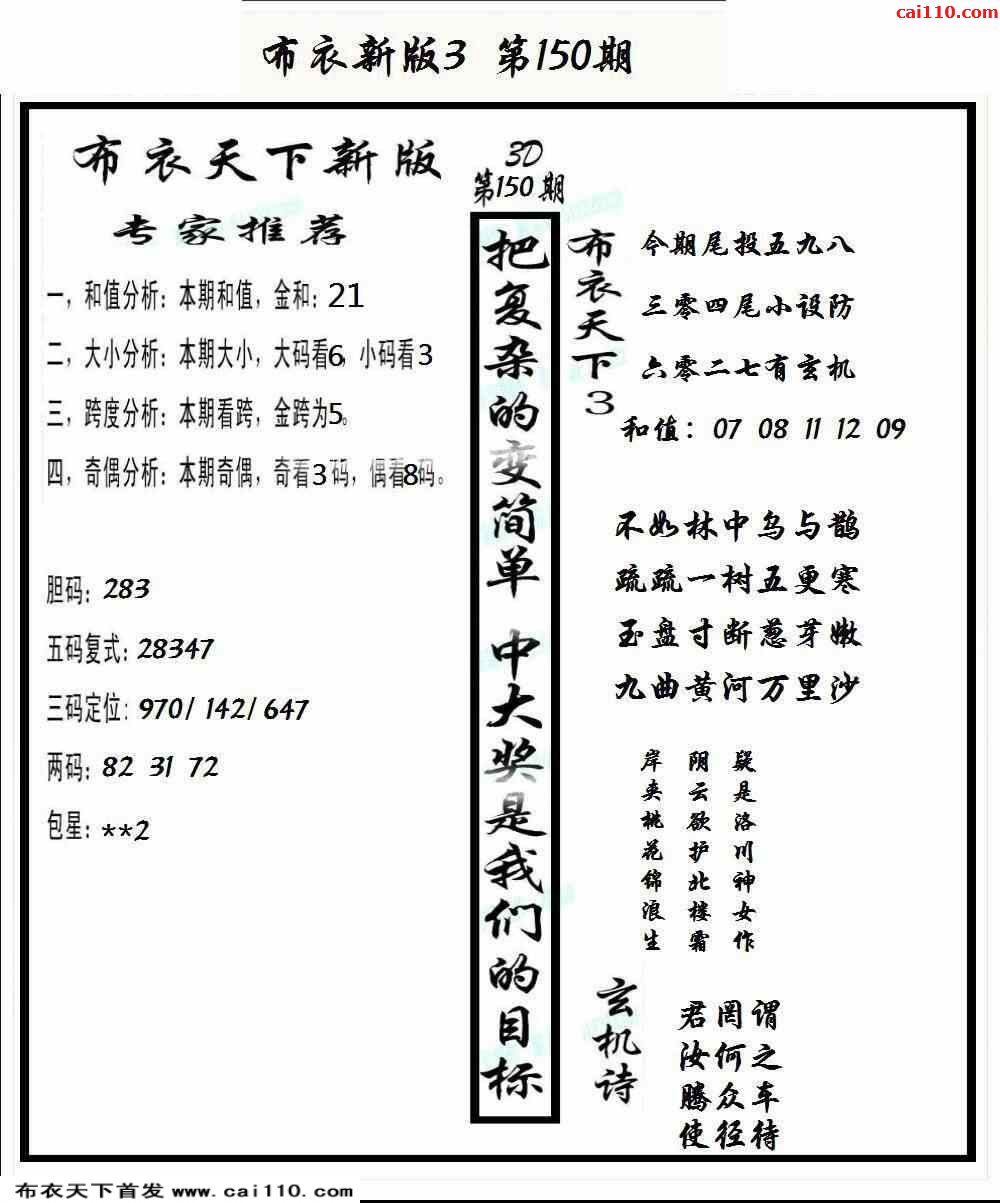 cai110.com
布衣新版3 第150期
布衣天下新版
专家推荐
一，和值分析：本期和值，金和：21
二，大小分析：本期大小，大码看6，小码看3
三，跨度分析：本期看跨，金跨为5。
四，奇偶分析：本期奇偶，奇看3码，偶看8码。
胆码：283
五码复式：28347
三码定位：970/ 142/ 647
两码：82 31 72
包星：**2
3D
第150期
把复杂的变简单 中大奖是我们的目标
布衣天下3
今期尾投五九八
三零四尾小设防
六零二七有玄机
和值：07 08 11 12 09
不如林中乌与鹊
疏疏一树五更寒
玉盘寸断葱芽嫩
九曲黄河万里沙
疑是洛川神女作
阴云欲护北楼霜
岸夹桃花锦浪生
玄机诗
君罔谓
汝何之
腾众车
使径待
布衣天下首发 www.cai110.com